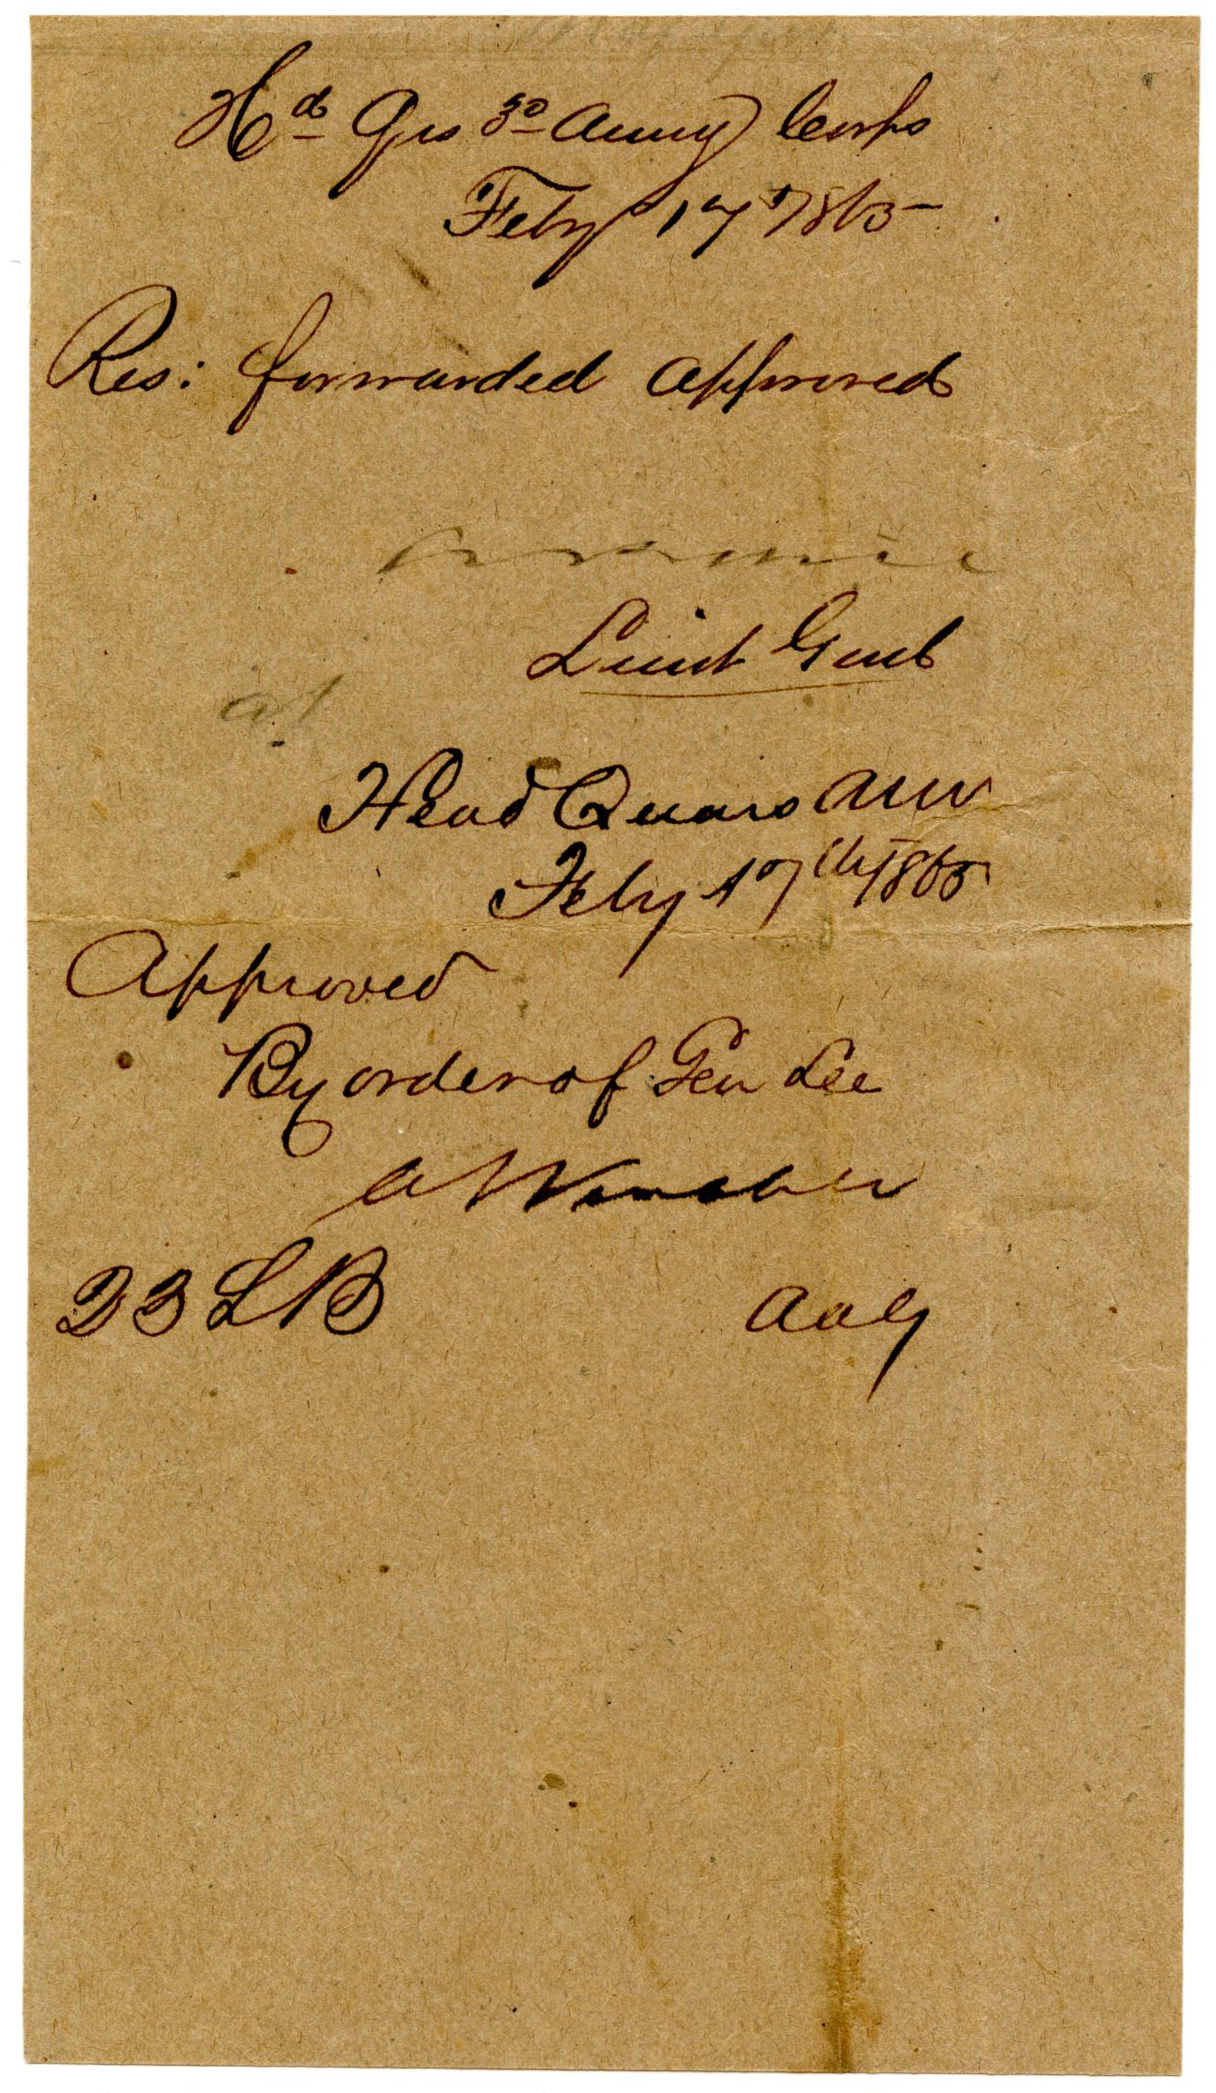 Hd Qrs 3d Army Corps
Feby 17 1865
Res: forwarded approved
Lieut Genl
Head Quars ANV
Feby 17th 1865
Approved
By order of Gen Lee
23 LB
AAG